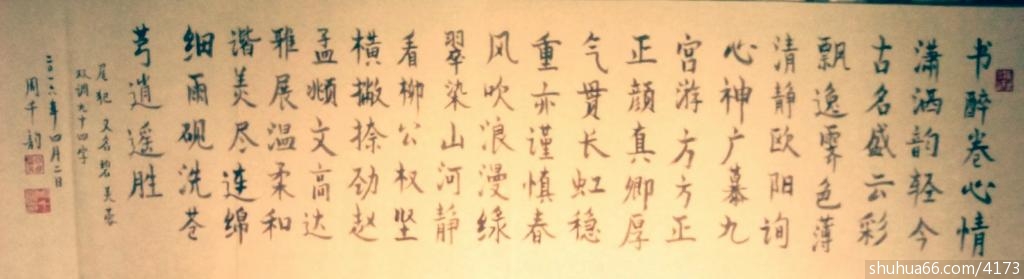 书醉卷心情
潇洒韵轻今
古名盛云彩
飘逸霁色薄
清静欧阳询
心神广慕九
宫游方方正
正颜真卿厚
气贯长虹稳
重亦谨慎春
风吹浪漫绿
翠染山河静
看柳公权坚
横撇捺劲赵
孟頫文高达
雅展温柔和
谐美尽连绵
细雨砚洗苍
芎逍遥胜
尾犯 又名碧芙蓉
双调九十四字
二〇一六年四月二日
周千韵
shuhua66.com/4173